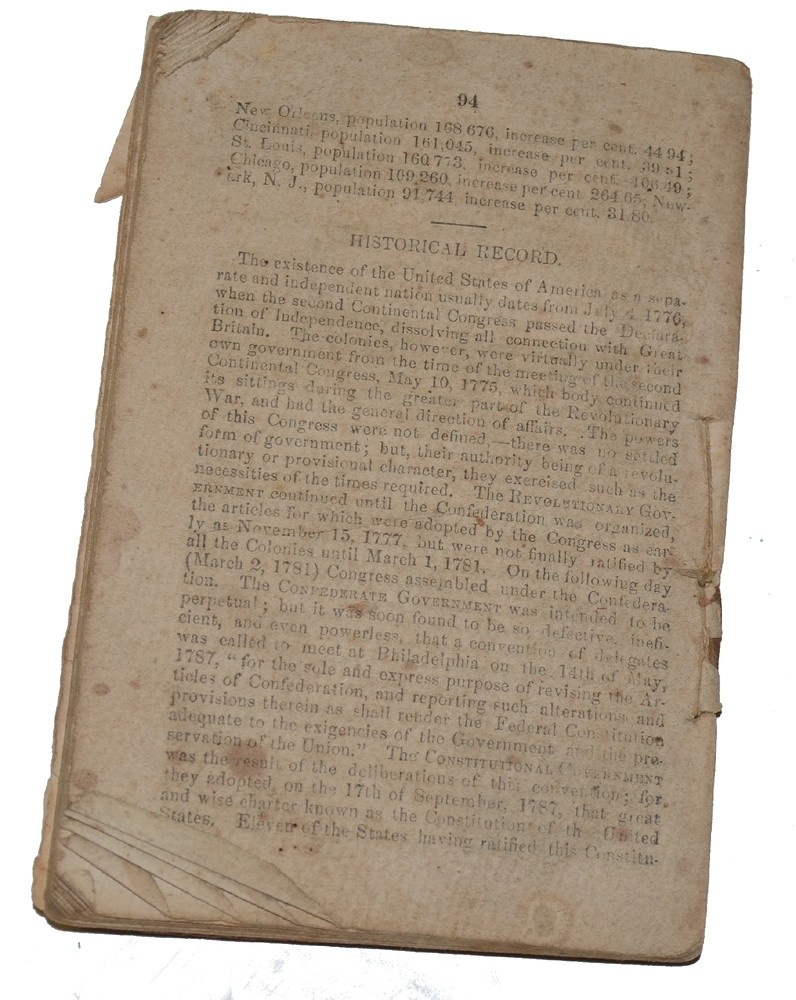 94
New Orleans, population 168 676, increase per cent. 44 94;
Cincinnati, population 161,045, increase per cent. 39 51;
St. Louis, population 160,773, increase per cent. 106.49;
Chicago, population 109,260, increase per cent 264 65; New-
ark, N. J., population 91,744 increase per cent. 31.80.
HISTORICAL RECORD.
The existence of the United States of America as a sepa-
rate and independent nation usually dates from July 4, 1776,
when the second Continental Congress passed the Declara-
tion of Independence, dissolving all connection with Great
Britain. The colonies, however, were virtually under their
own government from the time of the meeting of the second
Continental Congress, May 10, 1775, which body continued
its sittings during the greater part of the Revolutionary
War, and had the general direction of affairs. The powers
of this Congress were not defined,—there was no settled
form of government; but, their authority being of a revolu-
tionary or provisional character, they exercised such as the
necessities of the times required. The REVOLUTIONARY GOV-
ERNMENT continued until the Confederation was organized,
the articles for which were adopted by the Congress as ear-
ly as November 15, 1777, but were not finally ratified by
all the Colonies until March 1, 1781. On the following day
(March 2, 1781) Congress assembled under the Confedera-
tion. The CONFEDERATE GOVERNMENT was intended to be
perpetual; but it was soon found to be so defective, ineffi-
cient, and even powerless, that a convention of delegates
was called to meet at Philadelphia on the 14th of May,
1787, "for the sole and express purpose of revising the Ar-
ticles of Confederation, and reporting such alterations and
provisions therein as shall render the Federal Constitution
adequate to the exigencies of the Government and the pre-
servation of the Union." The CONSTITUTIONAL GOVERNMENT
was the result of the deliberations of this convention; for,
they adopted, on the 17th of September, 1787, that great
and wise charter known as the Constitution of the United
States. Eleven of the States having ratified this Constitu-